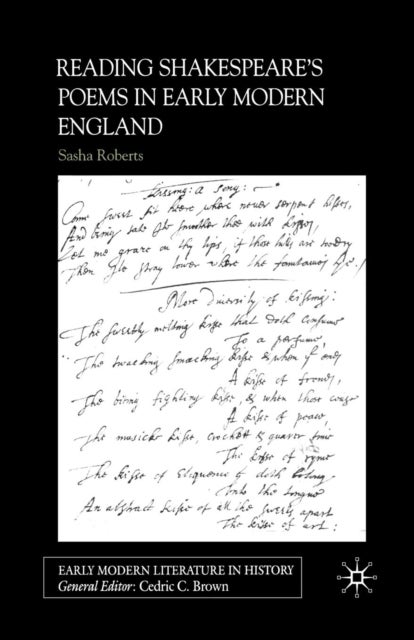 READING SHAKESPEARE'S
POEMS IN EARLY MODERN
ENGLAND
Sasha Roberts
kissing: A song:
Come sweet sit heere where never serpent hisses,
And being sate Ile smoother thee with kisses,
Let me graze on thy lips, if those hills are
Then Ile stray lower where the fountaines lye.
More Diversity of kissing:
The sweetly melting kisse that doth consume
To a perfume,
The twacking smacking kisse & when if ends
A kisse of frends,
The biting fighting kisse, & when those cease
A kisse of peace,
The musicke kisse, crochett & quaver time
The kisse of ryme
The kisse of Eloquence doth belong
unto the tongue
An abstract kisse of all the sweets apart
The kisse of art:
EARLY MODERN LITERATURE IN HISTORY
General Editor: Cedric C. Brown